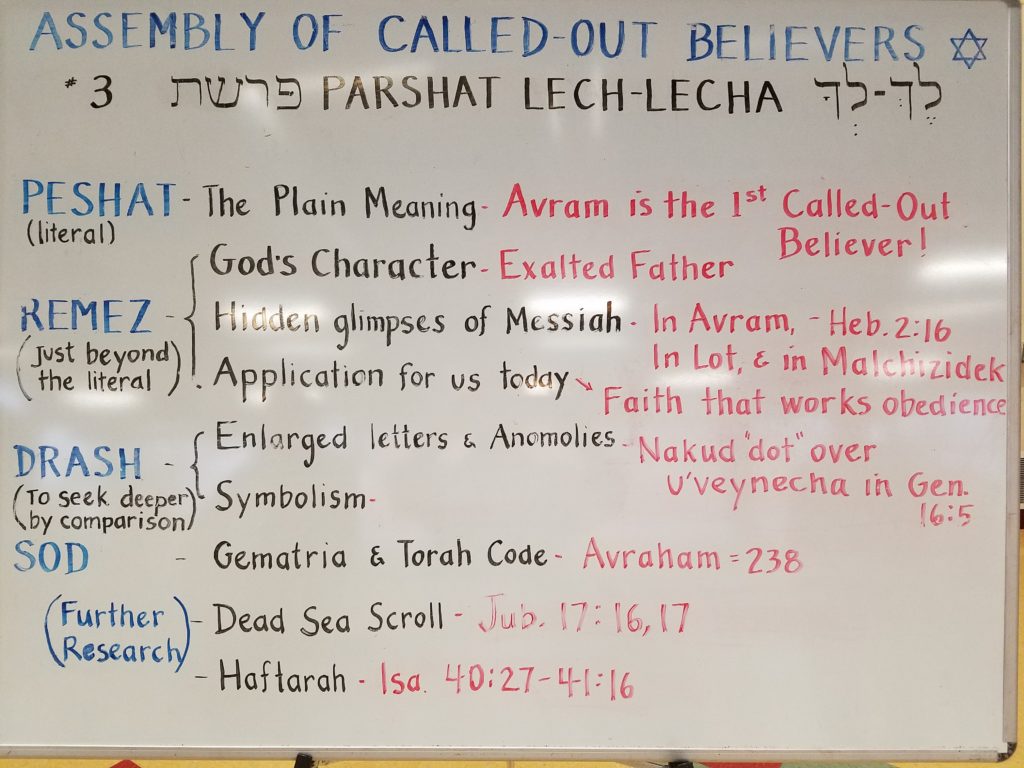 ASSEMBLY OF CALLED-OUT BELIEVERS
#3 פרשת PARSHAT LECH-LECHA לֶךְ-לְךָ
PESHAT - The Plain Meaning - Avram is the 1st Called-Out
(literal) Believer!
God's Character - Exalted Father
REMEZ - Hidden glimpses of Messiah - In Avram, - Heb. 2:16
(Just beyond In Lot, & in Malchizidek
the literal) Application for us today
Faith that works obedience
Enlarged letters & Anomolies - Nakud "dot" over
DRASH - u'veynecha in Gen.
(To seek deeper Symbolism - 16:5
by comparison)
SOD - Gematria & Torah Code - Avraham = 238
(Further - Dead Sea Scroll - Jub. 17:16,17
Research) - Haftarah - Isa. 40:27-41:16